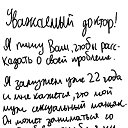 Уважаемый доктор!
Я пишу Вам, чтобы расс-
казать о своей проблеме.
Я замужем уже 22 года
и мне кажется, что мой
муж сексуальный маньяк.
Он может заниматься со